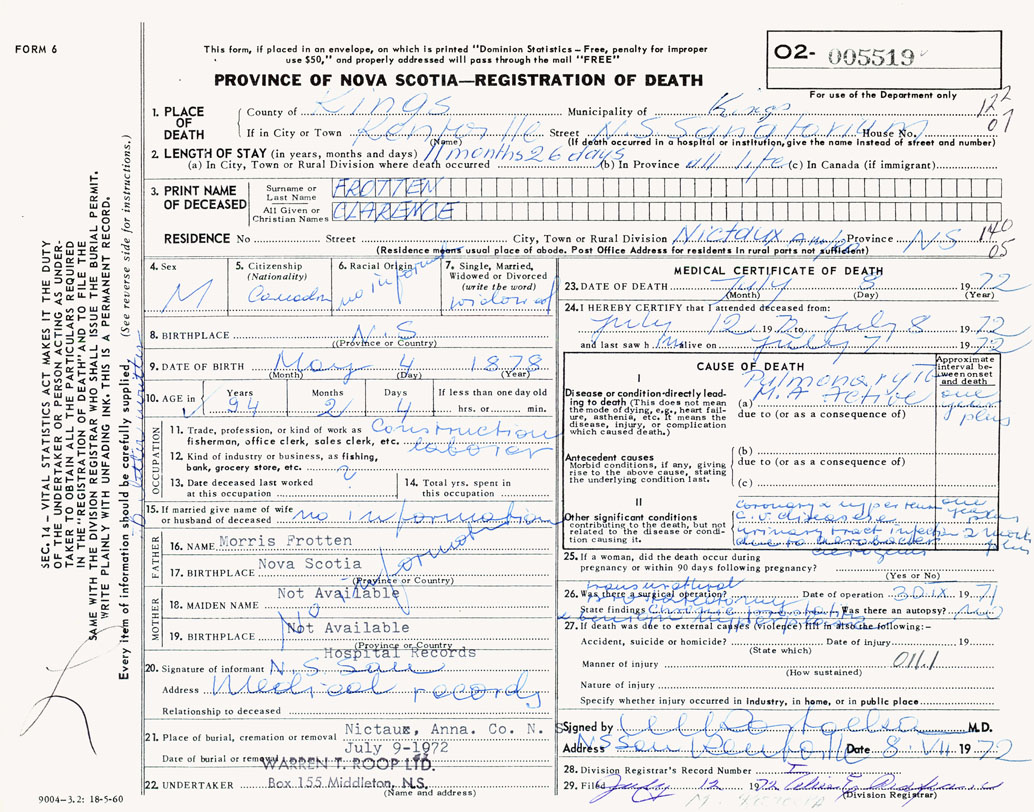 FORM 6
This form, if placed in an envelope, on which is printed "Dominion Statistics – Free, penalty for improper
use $50," and properly addressed will pass through the mail "FREE"
PROVINCE OF NOVA SCOTIA—REGISTRATION OF DEATH
02- 005519
For use of the Department only
122
07
1. PLACE OF DEATH
County of Kings Municipality of Kings
If in City or Town Kentville Street N S Sanatorium House No.
(Name) (If death occurred in a hospital or institution, give the name instead of street and number)
2. LENGTH OF STAY (in years, months and days) 11 months 26 days
(a) In City, Town or Rural Division where death occurred (b) In Province all life (c) In Canada (if immigrant)
3. PRINT NAME OF DECEASED
Surname or Last Name FROTTEN
All Given or Christian Names CLARENCE
RESIDENCE No Street City, Town or Rural Division Nictaux Province NS
140
05
(Residence means usual place of abode. Post Office Address for residents in rural parts not sufficient)
4. Sex
M
5. Citizenship
(Nationality)
6. Racial Origin
no information
7. Single, Married, Widowed or Divorced
(write the word)
widowed
8. BIRTHPLACE N.S
(Province or Country)
9. DATE OF BIRTH May 4 1878
(Month) (Day) (Year)
10. AGE in
Years Months Days If less than one day old
94 2 4 hrs. or min.
OCCUPATION
11. Trade, profession, or kind of work as Construction
fisherman, office clerk, sales clerk, etc. laborer
12. Kind of industry or business, as fishing,
bank, grocery store, etc. ?
13. Date deceased last worked
at this occupation
14. Total yrs. spent in
this occupation
15. If married give name of wife
or husband of deceased no information
FATHER
16. NAME Morris Frotten
17. BIRTHPLACE Nova Scotia
(Province or Country)
No information
MOTHER
18. MAIDEN NAME Not Available
19. BIRTHPLACE Not Available
(Province or Country)
Hospital Records
20. Signature of informant N.S. San
Address Medical records
Relationship to deceased
21. Place of burial, cremation or removal Nictaux, Anna. Co. N. S
Date of burial or removal July 9-1972
WARREN T. ROOP LTD.
22. UNDERTAKER Box 155 Middleton, N.S.
(Name and address)
9004–3.2: 18-5-60
SEC. 14 – VITAL STATISTICS ACT MAKES IT THE DUTY
OF THE UNDERTAKER OR PERSON ACTING AS UNDER-
TAKER TO OBTAIN ALL THE PARTICULARS REQUIRED
IN THE "REGISTRATION OF DEATH" AND TO FILE THE
SAME WITH THE DIVISION REGISTRAR WHO SHALL ISSUE THE BURIAL PERMIT.
WRITE PLAINLY WITH UNFADING INK. THIS IS A PERMANENT RECORD.
Every item of information should be carefully supplied. (See reverse side for instructions.)
MEDICAL CERTIFICATE OF DEATH
23. DATE OF DEATH July 8 1972
(Month) (Day) (Year)
24. I HEREBY CERTIFY that I attended deceased from:
July 12 19 to July 8 1972
and last saw him alive on July 7 1972
CAUSE OF DEATH
Approximate interval between onset and death
I
Disease or condition directly lead-
ing to death (This does not mean
the mode of dying, e.g., heart fail-
ure, asthenia, etc. It means the
disease, injury, or complication
which caused death.)
Pulmonary TB
(a) M.A Active
one year plus
due to (or as a consequence of)
Antecedent causes
Morbid conditions, if any, giving
rise to the above cause, stating
the underlying condition last.
(b)
due to (or as a consequence of)
(c)
II
Other significant conditions
contributing to the death, but not
related to the disease or condi-
tion causing it.
C.V. disease
urinary tract
25. If a woman, did the death occur during
pregnancy or within 90 days following pregnancy?
(Yes or No)
transurethral
26. Was there a surgical operation? Date of operation 30 IX 1971
State findings Was there an autopsy? No
27. If death was due to external causes (violence) fill in also the following:–
Accident, suicide or homicide? Date of injury 19
(State which)
Manner of injury 011.1
(How sustained)
Nature of injury
Specify whether injury occurred in industry, in home, or in public place
Signed by M.D.
Address NS San Kentville Date 8 VII 1972
28. Division Registrar's Record Number
29. Filed July 12 1972
(Division Registrar)